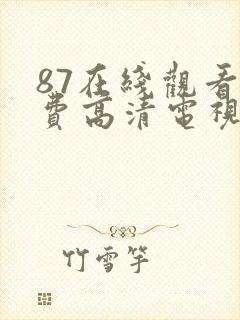 87在綫觀看
費高清電視
竹雪竿